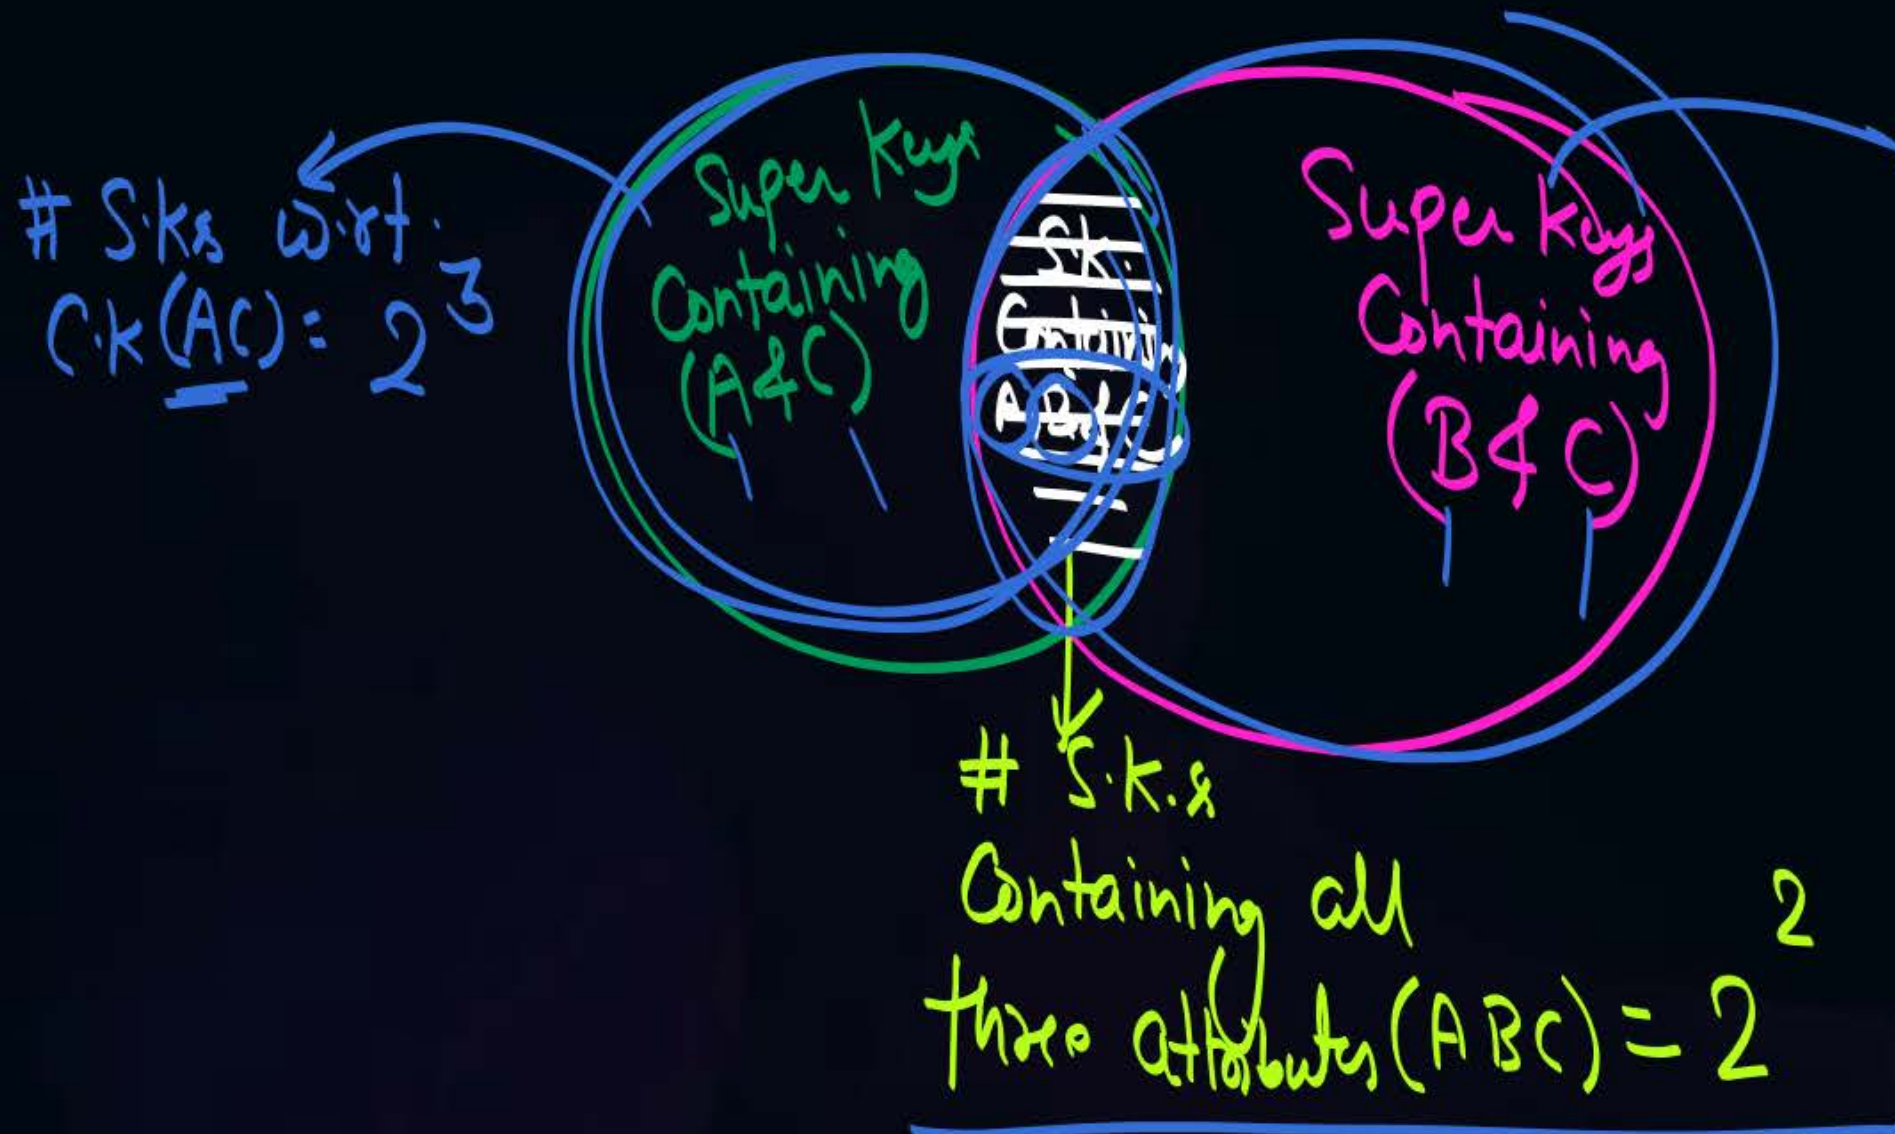 # S.Ks w.r.t.
C.K (AC) = 2³
Super Keys
Containing
(A & C)
S.K.
Containing
A B & C
Super Keys
Containing
(B & C)
# S.K.s
Containing all
three attributes (ABC) = 2²